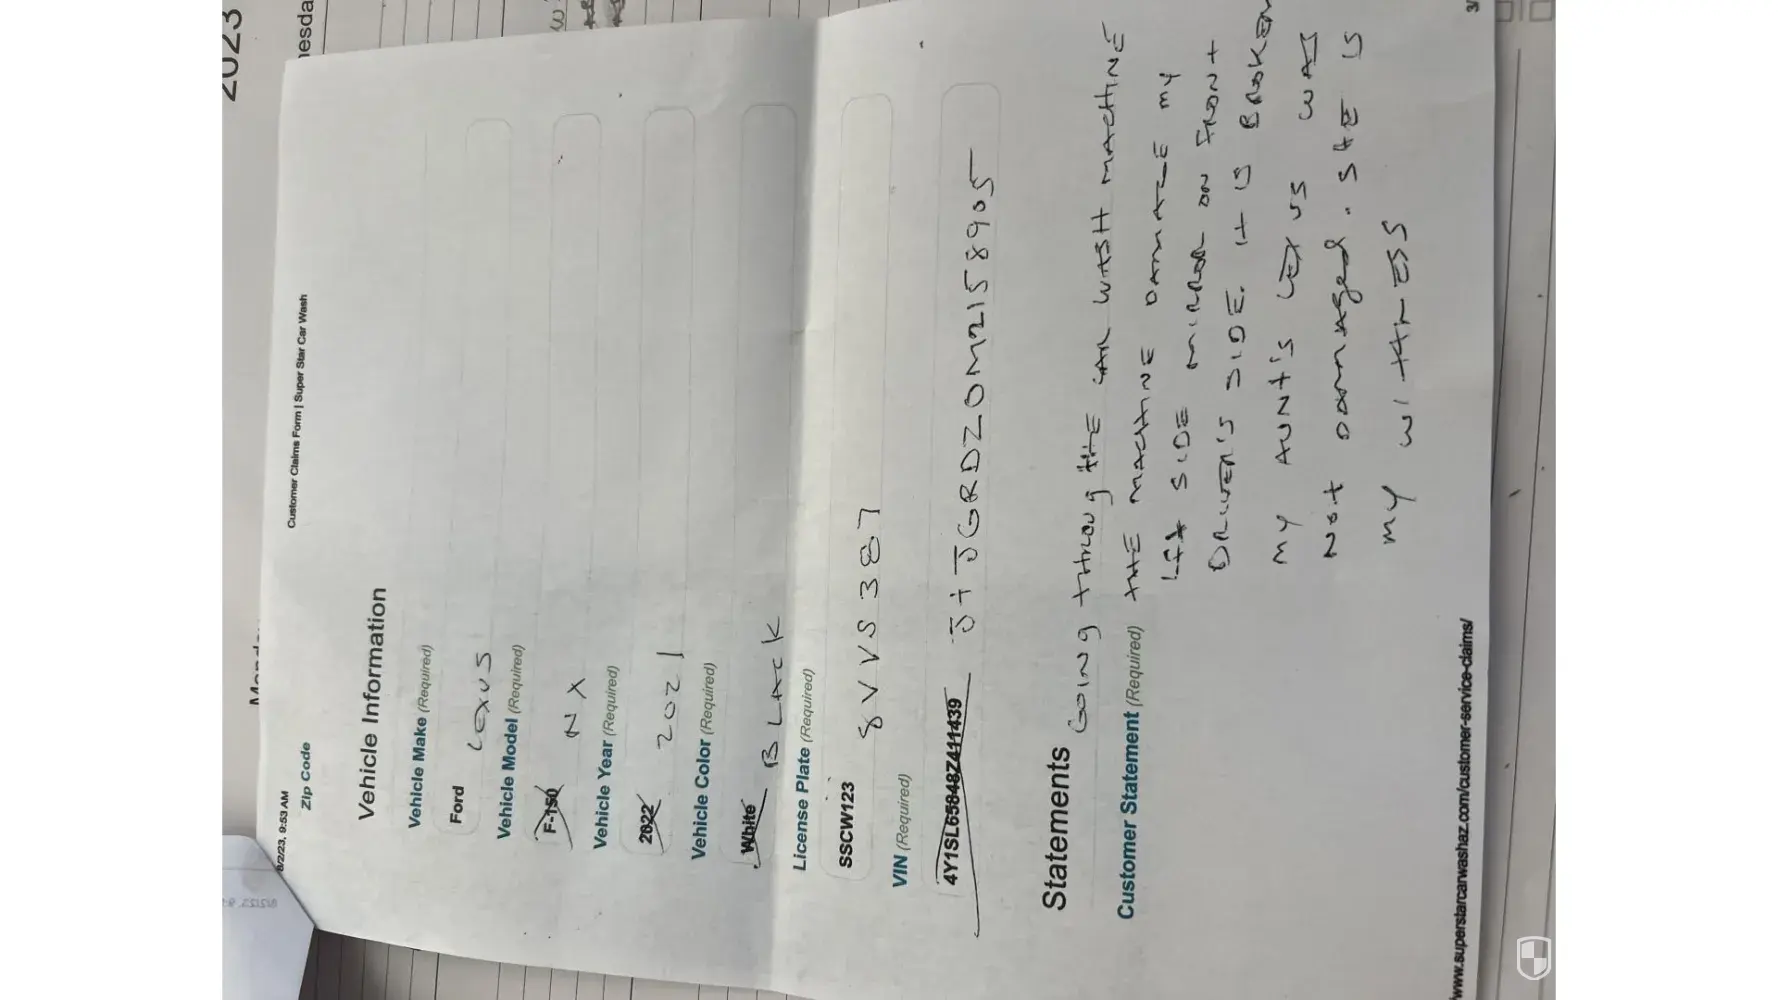 2023
nesda
8/2/23, 9:53 AM
Customer Claims Form | Super Star Car Wash
Zip Code
Vehicle Information
Vehicle Make (Required)
Ford
Lexus
Vehicle Model (Required)
F-150
NX
Vehicle Year (Required)
2022
2021
Vehicle Color (Required)
White
BLACK
License Plate (Required)
SSCW123
8VVS387
VIN (Required)
4Y1SL65848Z411439
JTJGRDZ0M2158905
Statements
GOING THROUgh THE CAR WASH MACHINE
Customer Statement (Required)
THE MACHINE DAMAGE MY
LFt SIDE MIRROR ON FRONT
DRIVER'S SIDE. It IS BROKEN
MY AUNT'S LEXUS WAS
Not DAMAged. SHE IS
MY WITNESS
www.superstarcarwashaz.com/customer-service-claims/
3/